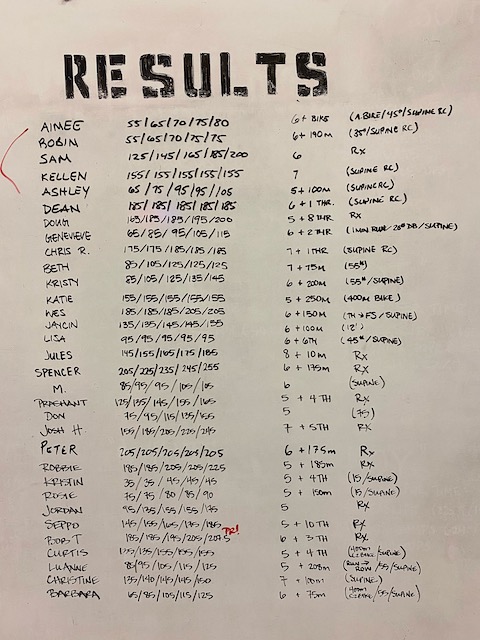 RESULTS
AIMEE 55/65/70/75/80 6 + BIKE (A.BIKE/45#/SUPINE RC)
ROBIN 55/65/70/75/75 6 + 190M (35#/SUPINE RC)
SAM 125/145/165/185/200 6 RX
KELLEN 155/155/155/155/155 7 (SUPINE RC)
ASHLEY 65/75/95/95/105 5 + 100M (SUPINE RC)
DEAN 185/185/185/185/185 6 + 1 THR. (SUPINE RC)
DOUG 165/185/185/195/200 5 + 8 THR RX
GENEVIEVE 65/85/95/105/115 6 + 2 THR (1 MIN RUN/20# DB/SUPINE)
CHRIS R. 175/175/185/185/185 7 + 1 THR (SUPINE RC)
BETH 85/105/125/125/125 7 + 75M (55#)
KRISTY 85/105/125/135/145 6 + 200M (55#/SUPINE)
KATIE 155/155/155/155/155 5 + 250M (400M BIKE)
WES 185/185/185/205/205 6 + 150M (TH→FS/SUPINE)
JAYCIN 135/135/145/145/155 6 + 100M (12')
LISA 95/95/95/95/95 6 + 6TH (45#/SUPINE)
JULES 145/155/165/175/185 8 + 10M RX
SPENCER 205/225/235/245/255 6 + 175M RX
M. 85/95/95/105/105 6 (SUPINE)
PRASHANT 125/135/145/155/165 5 + 4TH RX
DON 75/95/115/135/155 5 (75)
JOSH H. 155/185/205/225/245 7 + 5TH RX
PETER 205/205/205/205/205 6 + 175M RX
ROBBIE 185/185/205/205/225 5 + 185M RX
KRISTIN 35/35/45/45/45 5 + 4TH (15/SUPINE)
ROSIE 75/75/80/85/90 5 + 150M (15/SUPINE)
JORDAN 95/135/155/155/175 5 RX
SEPPO 145/155/165/175/185 5 + 10TH RX
BOB T 185/185/195/205/207.5 PR! 6 + 3TH RX
CURTIS 135/135/155/155/155 5 + 4TH /SUPINE)
LUANNE 85/95/105/115/125 5 + 208M (RUN→ROW/55/SUPINE)
CHRISTINE 135/140/145/145/150 7 + 100M (SUPINE)
BARBARA 65/85/105/115/125 6 + 75M /55/SUPINE)